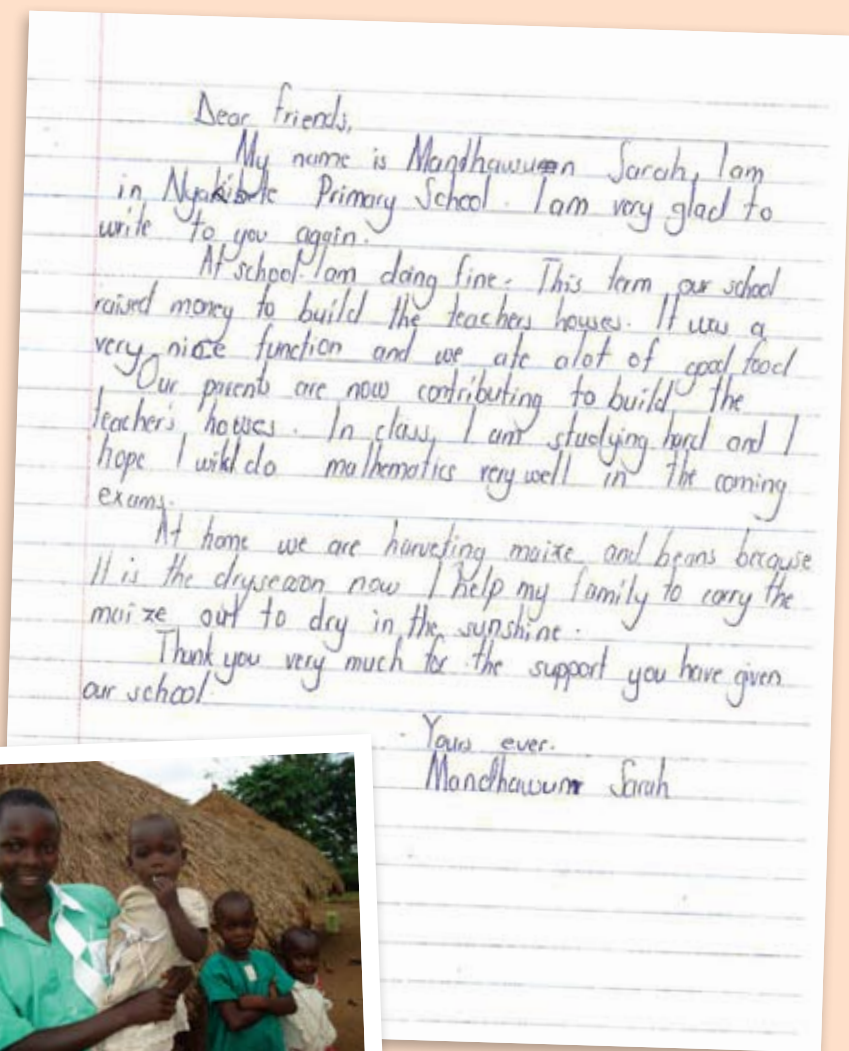 Dear friends,
My name is Mandhawun Sarah, Iam
in Primary School. Iam very glad to
write to you again.
At school Iam doing fine. This term our school
raised money to build the teachers houses. It was a
very nice function and we ate alot of good food
Our parents are now contributing to build the
teacher's houses. In class, I am studying hard and I
hope I will do mathematics very well in the coming
exams.
At home we are harvesting maize and beans because
It is the dryseason now I help my family to carry the
maize out to dry in the sunshine.
Thank you very much for the support you have given
our school.
Yours ever.
Mandhawun Sarah